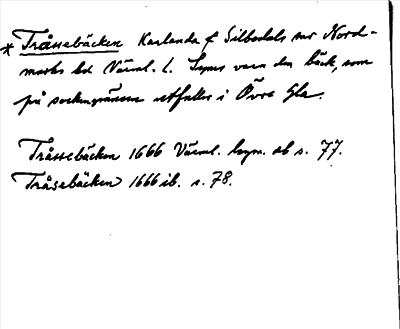 * Tråssebäcken Karlanda f Silbodals snr Nord-
marks hd Värml. l. Synes vara den bäck, som
på sockengränsen utfaller i Övre Gla.
Tråssebäcken 1666 Värml. lagm. db s. 77.
Tråsebäcken 1666 ib. s. 78.